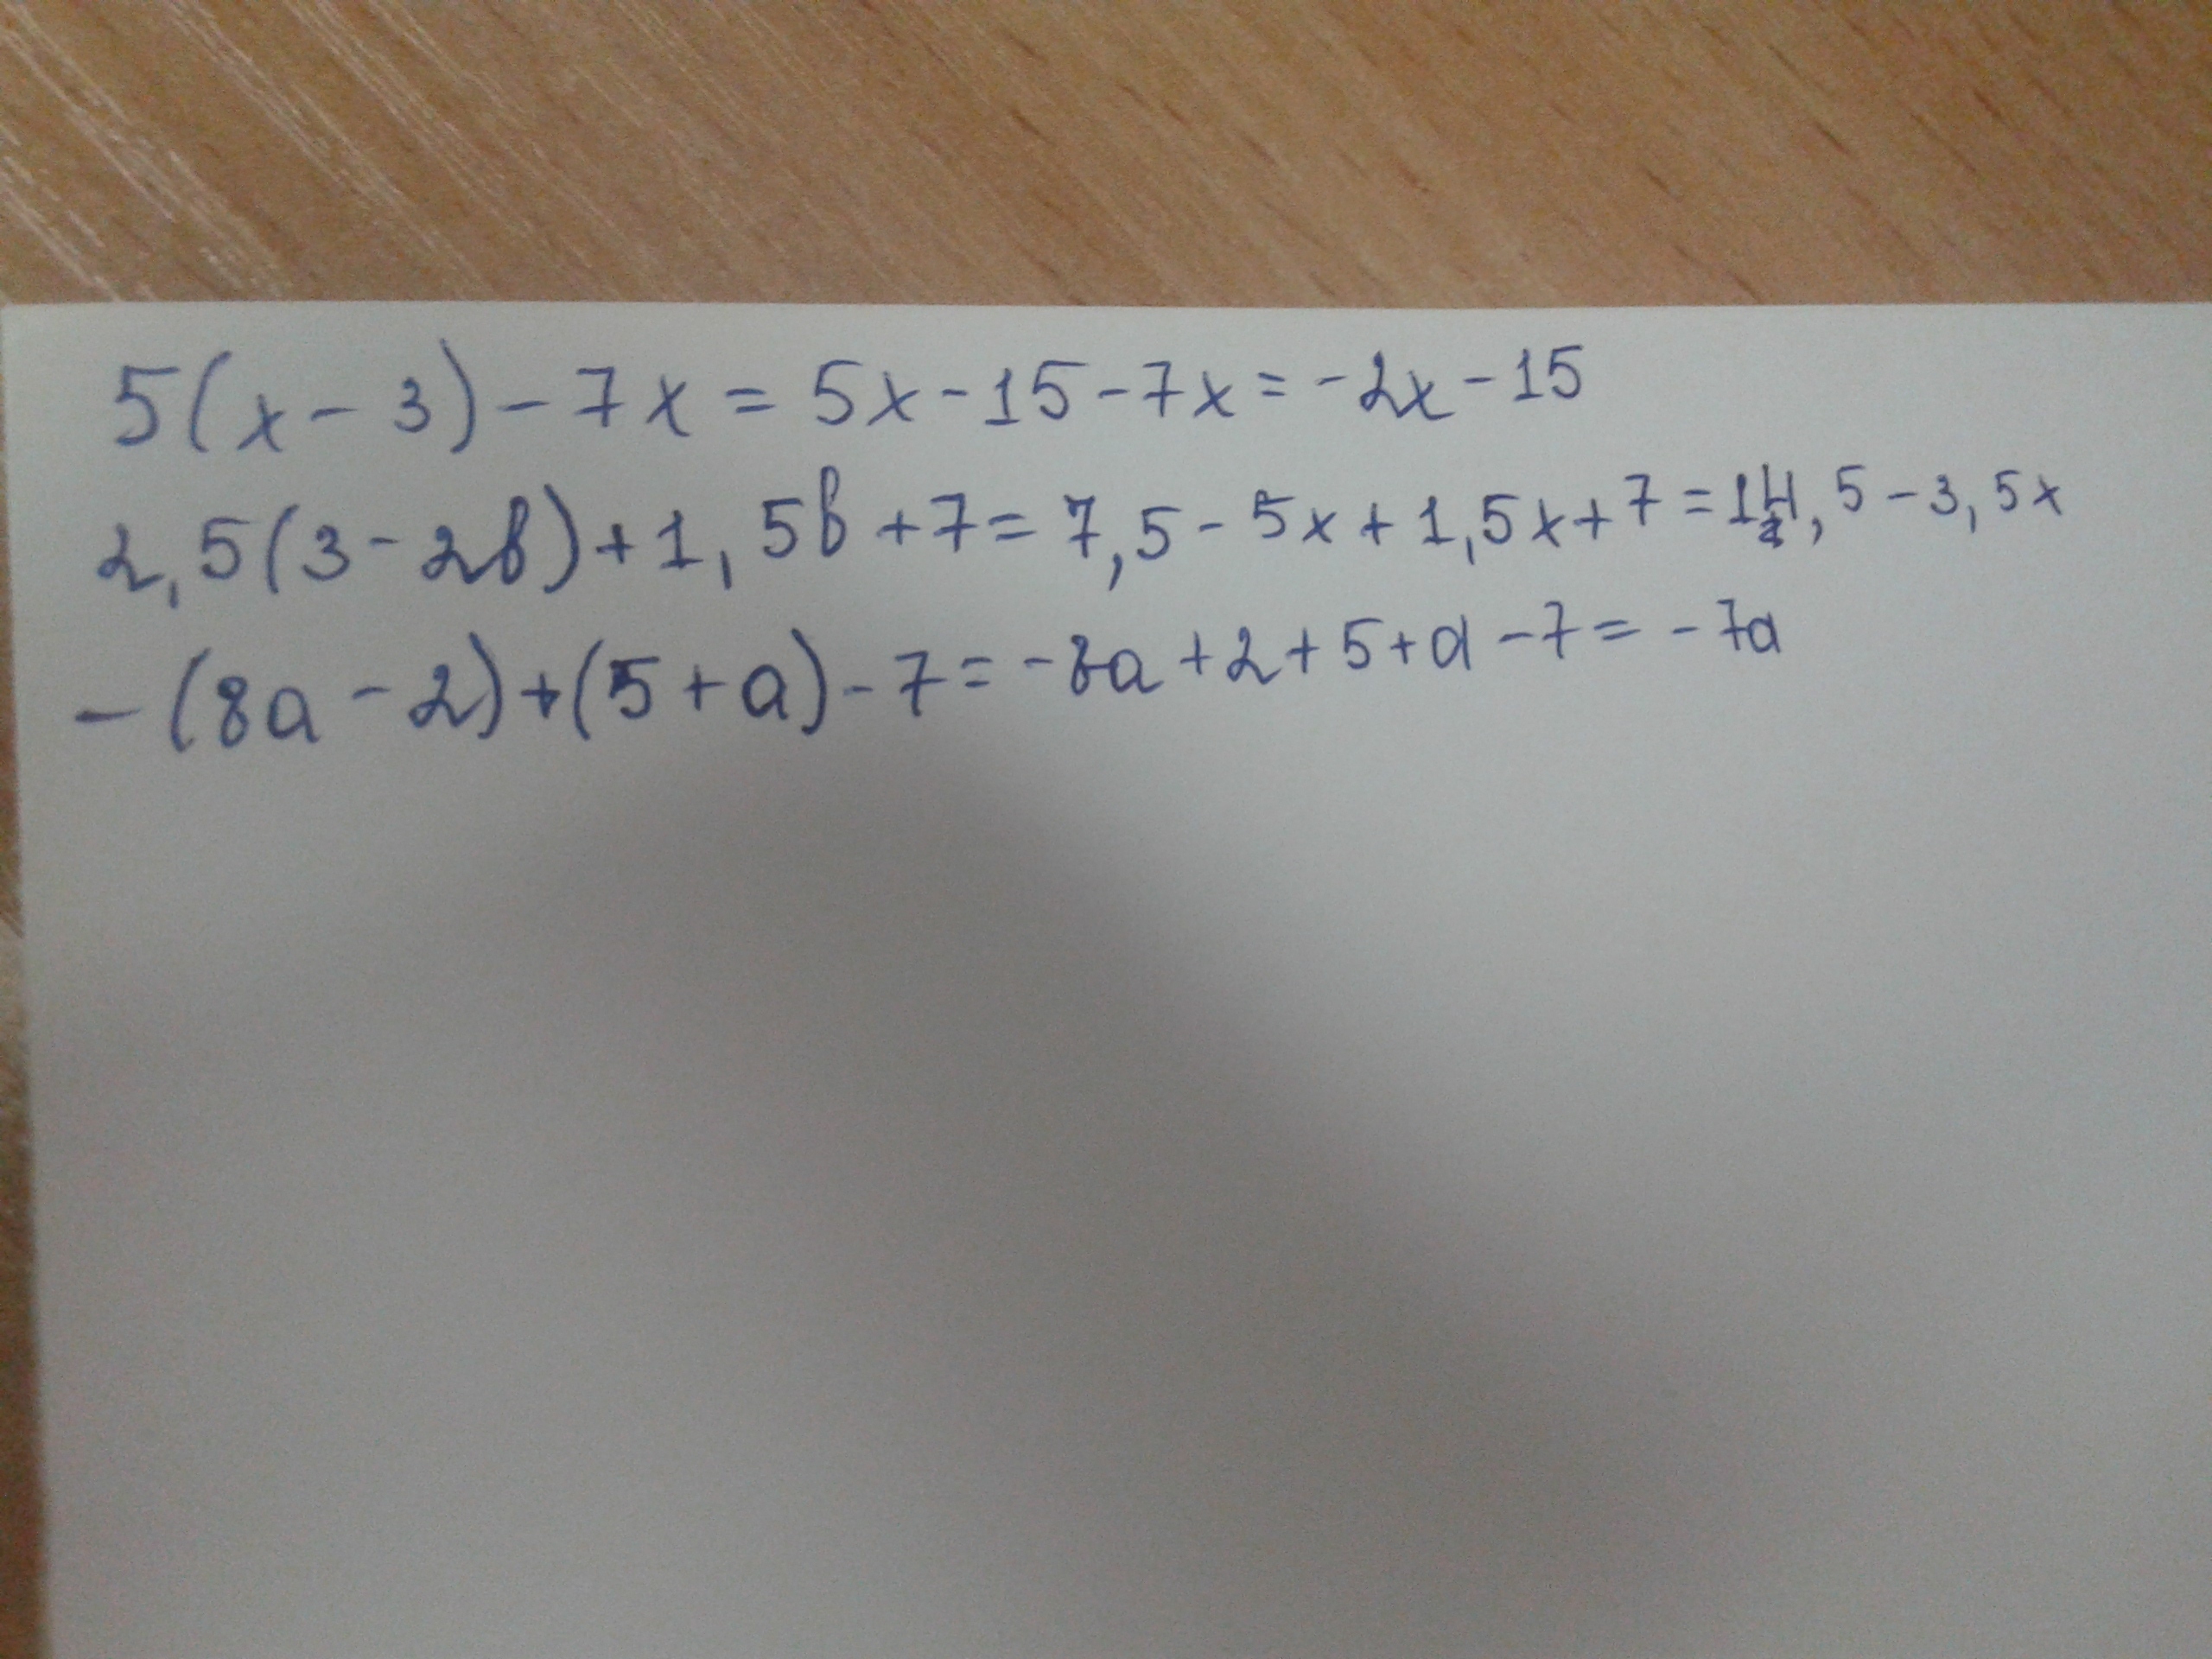 5(x-3)-7x=5x-15-7x=-2x-15
2,5(3-2b)+1,5b+7=7,5-5x+1,5x+7=14,5-3,5x
-(8a-2)+(5+a)-7=-8a+2+5+a-7=-7a